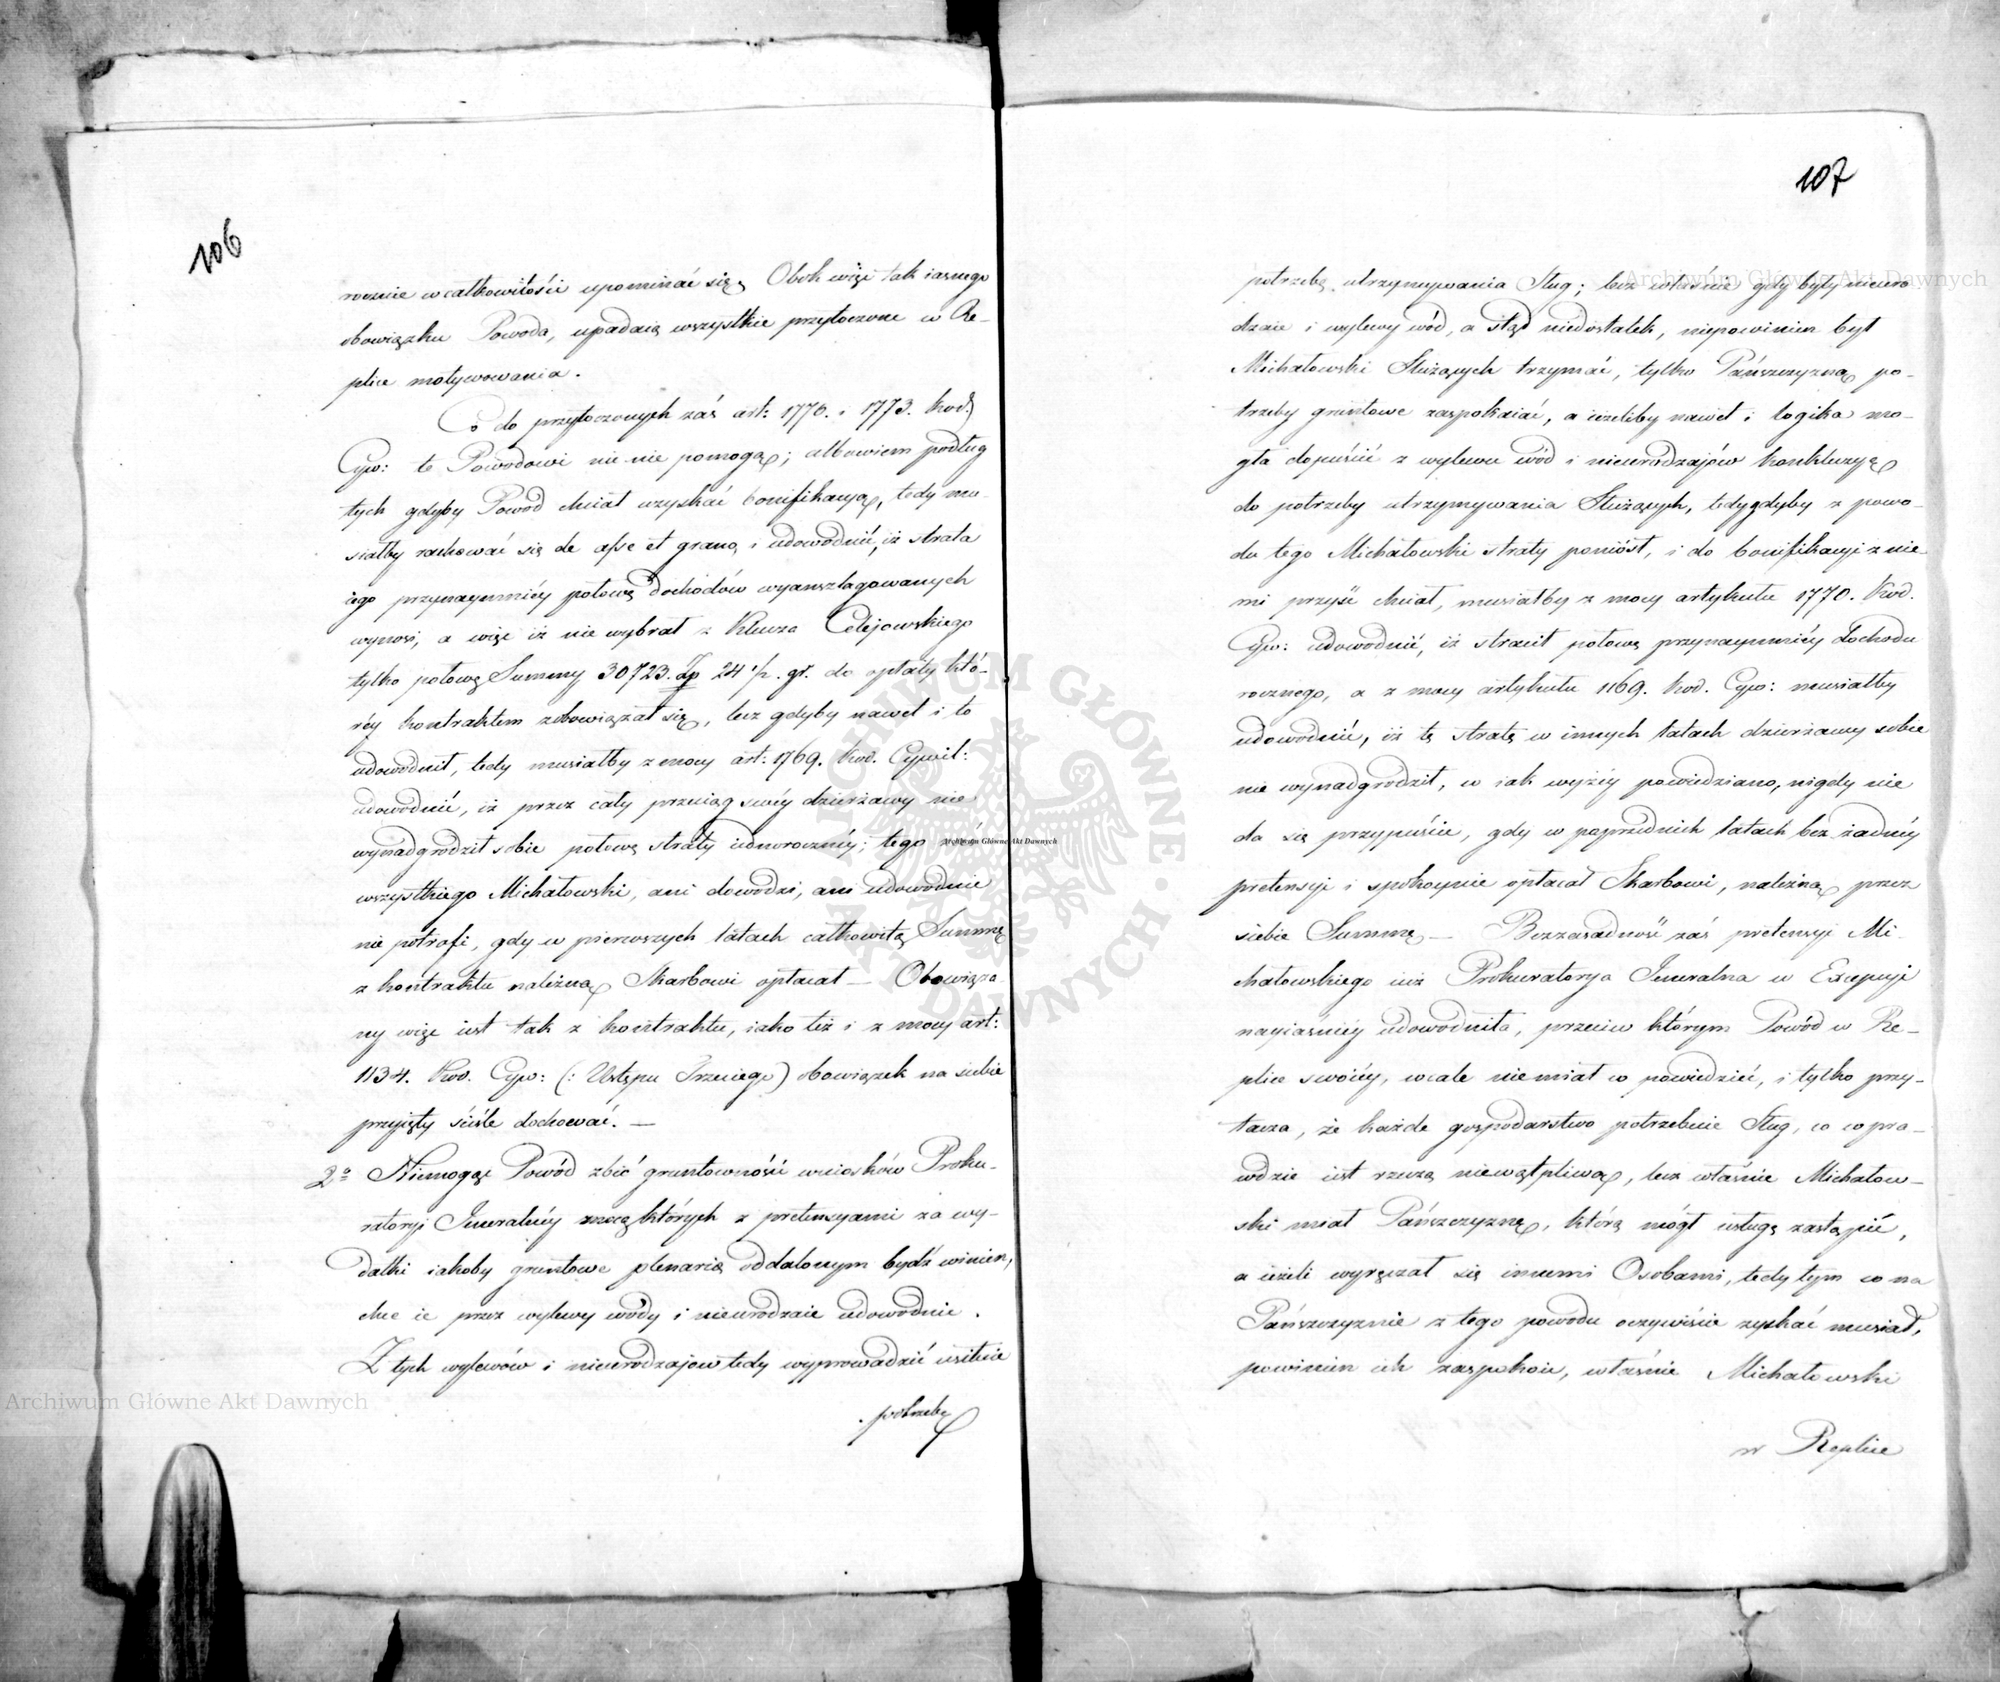 106
rocznie w całkowitości upominać się. Obok więc tak iasnego
obowiązku Powoda, upadaią wszystkie przytoczone w Re-
plice motywowania.
Co do przytoczonych zaś art: 1770. i 1773. Kod.
Cyw: te Powodowi nic nie pomogą; albowiem podług
tych gdyby Powod chciał uzyskać bonifikacyą, tedy mu-
siałby rachować się de asse et grano, i udowodnić, iż strata
iego przynaymniéy połowę dochodów wyanszlagowanych
wynosi, a więc iż nie wybrał z Klucza Celejowskiego
tylko połowę Summy 30723. Zp 24 1/2. gr. do opłaty któ-
réy kontraktem zobowiązał się, lecz gdyby nawet i to
udowodnił, tedy musiałby z mocy art: 1769. Kod. Cywil:
udowodnić, iż przez cały przeciąg swéy dzierżawy nie
wynadgrodził sobie połowę straty iednoroczniéy; tego zaś
wszystkiego Michałowski, ani dowodzi, ani udowodnić
nie potrafi, gdy w pierwszych latach całkowitą Summę
z kontraktu należną Skarbowi opłacał — Obowiąza-
ny więc iest tak z kontraktu, iako też i z mocy art:
1134. Kod. Cyw: (: Ustępu Trzeciego) obowiązek na siebie
przyięty ściśle dochować. —
2o Niemogąc Powód zbić gruntowność wniosków Proku-
ratoryi Jeneralnéy mocą których z pretensyami za wy-
datki iakoby gruntowe plenarie oddalonym bydź winien,
chce ie przez wylewy wody i nieurodzaie udowodnić.
Z tych wylewów i nieurodzajow tedy wyprowadzić usiłuie
potrzebę
107
potrzebę utrzymywania Sług; lecz właśnie gdy były nieuro
dzaie i wylewy wód, a ztąd niedostatek, niepowinien był
Michałowski Służących trzymać, tylko Pańszczyzną po-
trzeby gruntowe zaspokaiać, a ieżeliby nawet i logika mo-
gła dopuścić z wylewu wód i nieurodzajów konkluzyą
do potrzeby utrzymywania Służących, tedy gdyby z powo-
du tego Michałowski straty poniósł, i do bonifikacyi z nie-
mi przyść chciał, musiałby z mocy artykułu 1770. Kod.
Cyw: udowodnić, iż stracił połowę przynaymniéy dochodu
rocznego, a z mocy artykułu 1169. Kod. Cyw: musiałby
udowodnić, iż tę stratę w innych latach dzierżawy sobie
nie wynadgrodził, co iak wyżéy powiedziano, nigdy nie
da się przypuścić, gdy w poprzednich latach bez żadnéy
pretensyi i spokoynie opłacał Skarbowi, należną przez
siebie Summę — Bezzasadność zaś pretensyi Mi-
chałowskiego iuż Prokuratorya Jeneralna w Excepcyi
nayiaśniéy udowodniła, przeciw którym Powód w Re-
plice swoiéy, wcale niemiał co powiedzieć, i tylko przy-
tacza, że każde gospodarstwo potrzebuie Sług, co w pra-
wdzie iest rzeczą niewątpliwą, lecz właśnie Michałow-
ski miał Pańszczyznę, którą mógł usługę zastąpić,
a ieżeli wyręczał się innemi Osobami, tedy tym co na
Pańszczyznie z tego powodu oczywiście zyskać musiał,
powinien ich zaspokoić, właśnie Michałowski
w Replice
Archiwum Główne Akt Dawnych
Archiwum Główne Akt Dawnych
Archiwum Główne Akt Dawnych
ARCHIWUM GŁÓWNE AKT DAWNYCH